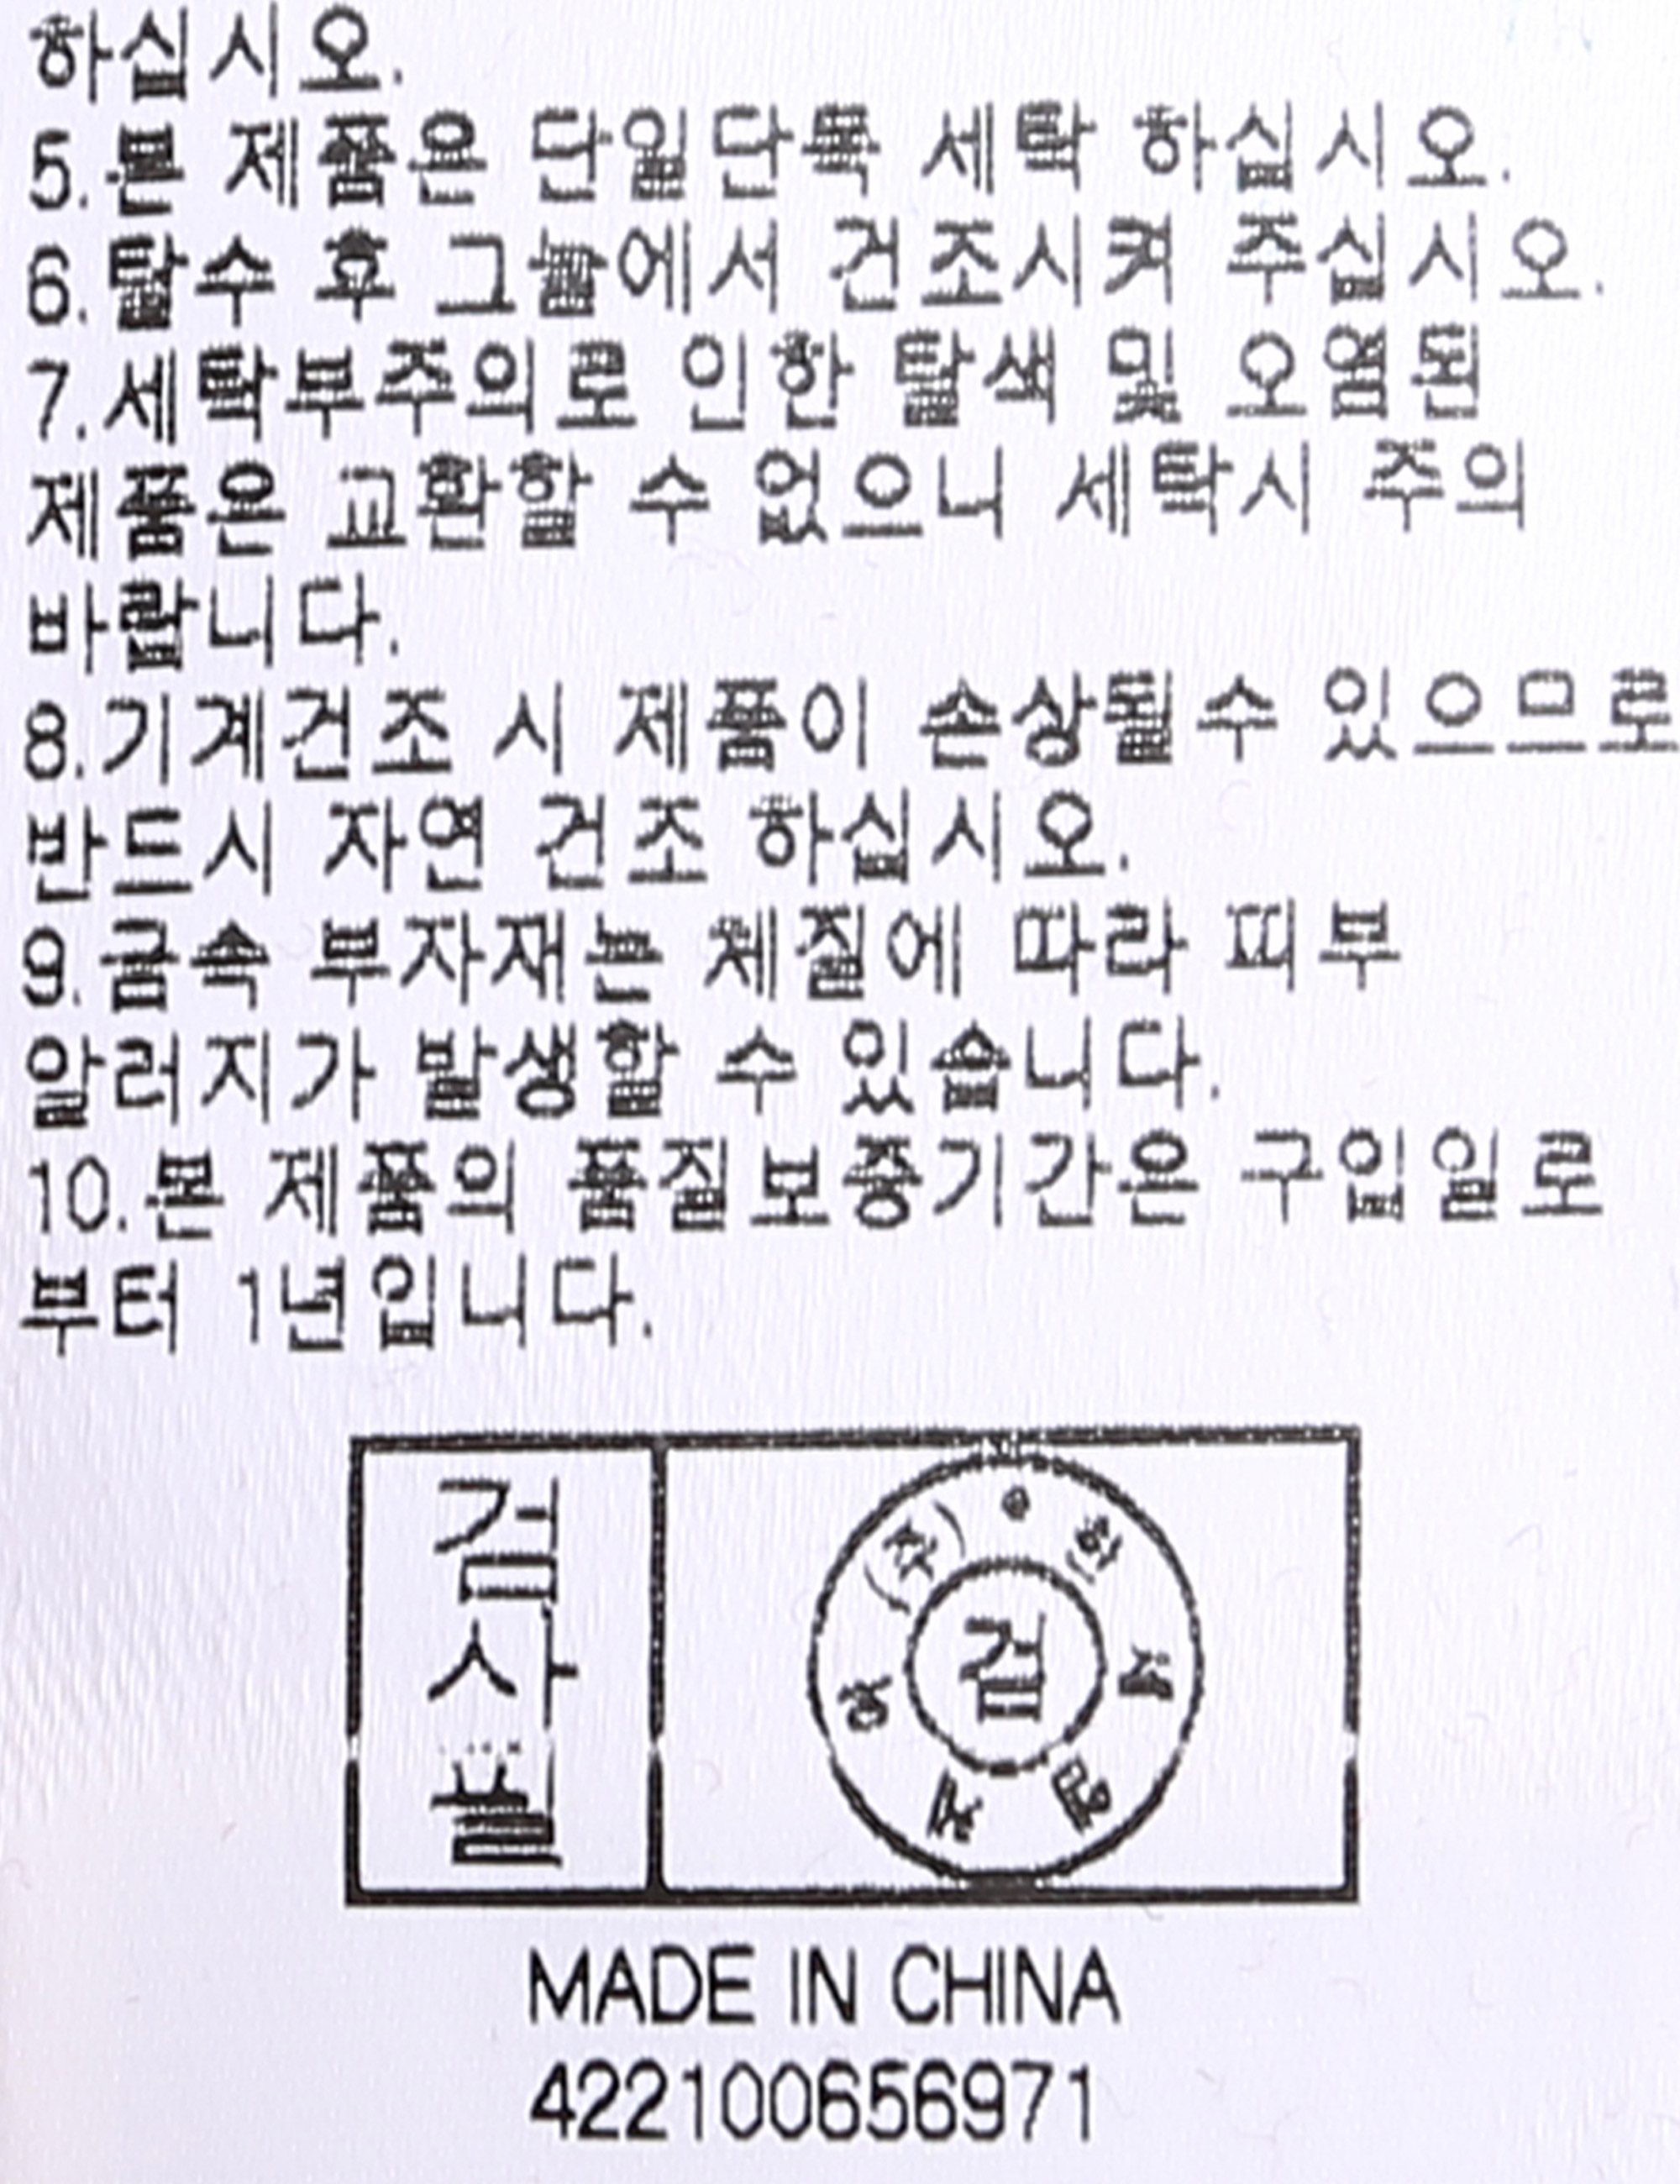 하십시오.
5.본 제품은 단일단독 세탁 하십시오.
6.탈수 후 그늘에서 건조시켜 주십시오.
7.세탁부주의로 인한 탈색 및 오염된
제품은 교환할 수 없으니 세탁시 주의
바랍니다.
8.기계건조 시 제품이 손상될수 있으므로
반드시 자연 건조 하십시오.
9.금속 부자재는 체질에 따라 피부
알러지가 발생할 수 있습니다.
10.본 제품의 품질보증기간은 구입일로
부터 1년입니다.
검사필
(주)
검
MADE IN CHINA
422100656971